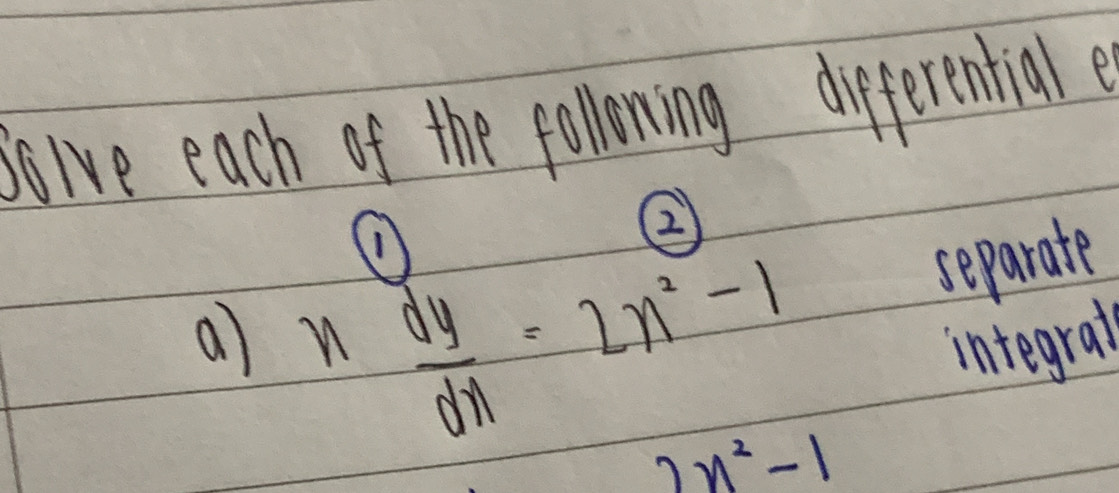 Solve each of the following differential
① ②
a) x dy/dx = 2x² - 1 separate
integrate
2x² - 1